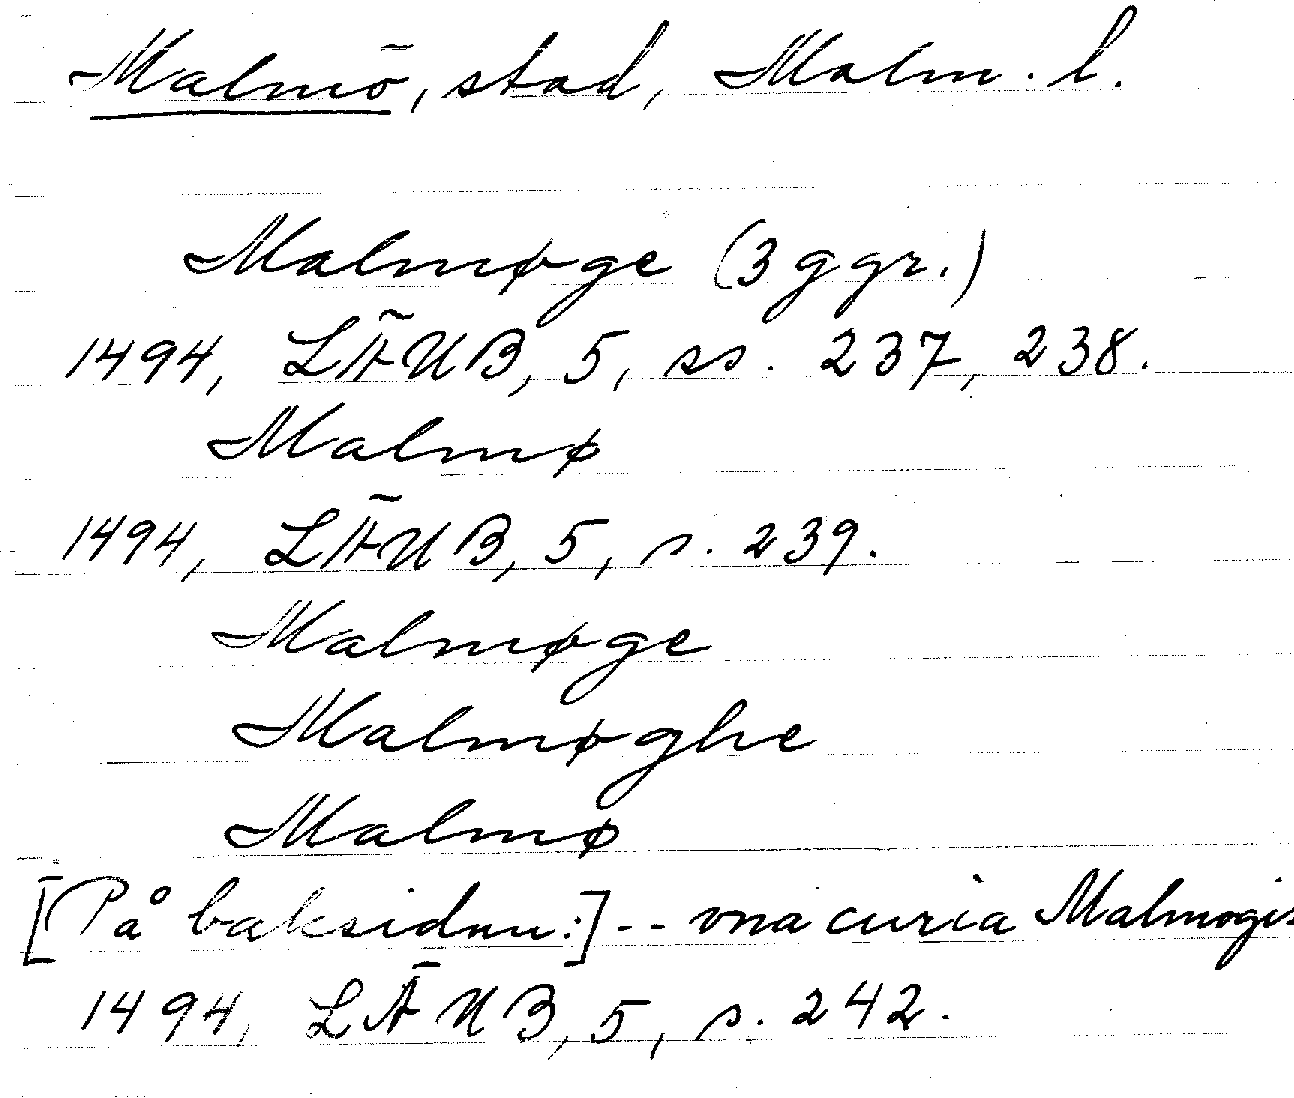 Malmö, stad, Malm. l.
Malmøge (3 ggr.)
1494, LÄUB, 5, ss. 237, 238.
Malmø
1494, LÄUB, 5, s. 239.
Malmøge
Malmøghe
Malmø
[På baksidan:] -- vna curia Malmogis
1494, LÄUB, 5, s. 242.